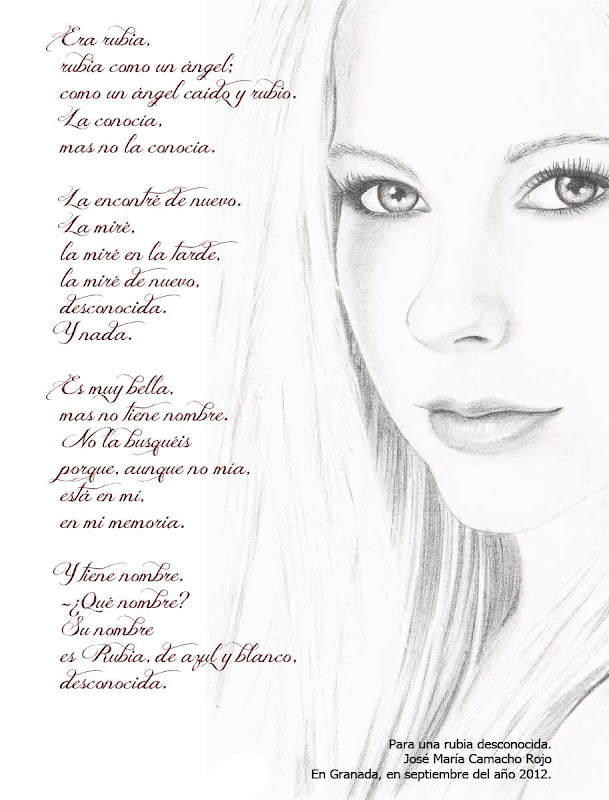 Era rubia,
rubia como un ángel;
como un ángel caído y rubio.
La conocía,
mas no la conocía.

La encontré de nuevo.
La miré,
la miré en la tarde,
la miré de nuevo,
desconocida.
Y nada.

Es muy bella,
mas no tiene nombre.
No la busquéis
porque, aunque no mía,
está en mí,
en mi memoria.

Y tiene nombre.
-¿Qué nombre?
Su nombre
es Rubia, de azul y blanco,
desconocida.

Para una rubia desconocida.
José María Camacho Rojo
En Granada, en septiembre del año 2012.